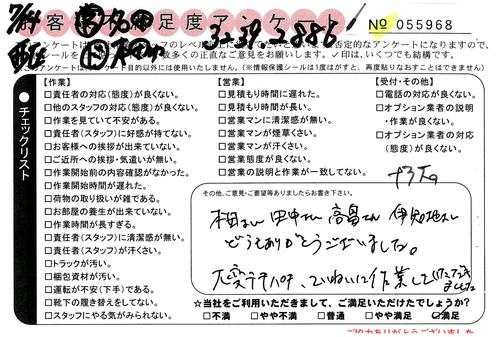 お客様満足度アンケート
№ 055968
3239 2886
アンケート目的以外には使用いたしません。(※情報保護シールは1度はがすと、再度貼りなおすことはできません)
チェックリスト
【作業】
□責任者の対応(態度)が良くない。
□他のスタッフの対応(態度)が良くない。
□作業を見ていて不安がある。
□責任者(スタッフ)に好感が持てない。
□お客様への挨拶が出来ていない。
□ご近所への挨拶・気遣いが無い。
□作業開始前の内容確認がなかった。
□作業開始時間が遅れた。
□荷物の取り扱いが雑である。
□お部屋の養生が出来ていない。
□作業時間が長すぎる。
□責任者(スタッフ)に清潔感が無い。
□責任者(スタッフ)が汗くさい。
□トラックが汚い。
□梱包資材が汚い。
□運転が不安(下手)である。
□靴下の履き替えをしてない。
□スタッフにやる気がみられない。
【営業】
□見積もり時間に遅れた。
□見積もり時間が長い。
□営業マンに清潔感が無い。
□営業マンが煙草くさい。
□営業マンが汗くさい。
□営業態度が良くない。
□営業の説明と作業が一致してない。
【受付・その他】
□電話の対応が良くない。
□オプション業者の説明
・作業が良くない。
□オプション業者の対応
(態度)が良くない。
その他、ご意見・ご要望等ありましたらお書き下さい。
本田さん 田中さん 高畠さん
どうもありがとうございました。
大変テキパキ、ていねいに作業して
★当社をご利用いただきまして、ご満足いただけたでしょうか?
□不満 □やや不満 □普通 □やや満足 ☑満足
ご協力ありがとうございました